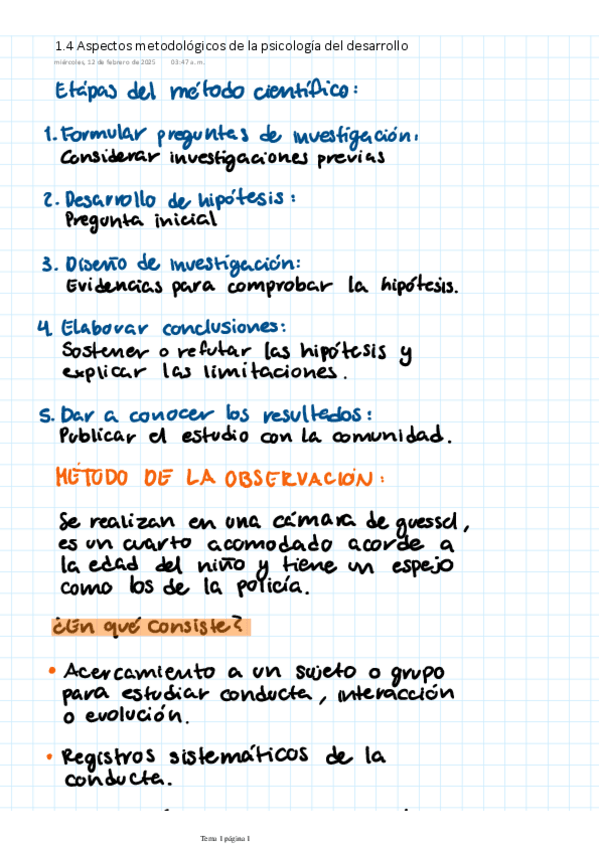 1.4 Aspectos metodológicos de la psicología del desarrollo
miércoles, 12 de febrero de 2025 03:47 a. m.
Etapas del método científico:
1. Formular preguntas de investigación:
Considerar investigaciones previas
2. Desarrollo de hipótesis:
Pregunta inicial
3. Diseño de investigación:
Evidencias para comprobar la hipótesis.
4. Elaborar conclusiones:
Sostener o refutar las hipótesis y
explicar las limitaciones.
5. Dar a conocer los resultados:
Publicar el estudio con la comunidad.
MÉTODO DE LA OBSERVACIÓN:
Se realizan en una cámara de guessel,
es un cuarto acomodado acorde a
la edad del niño y tiene un espejo
como los de la policía.
¿En qué consiste?
• Acercamiento a un sujeto o grupo
para estudiar conducta, interacción
o evolución.
• Registros sistemáticos de la
conducta.
Tema 1 página 1